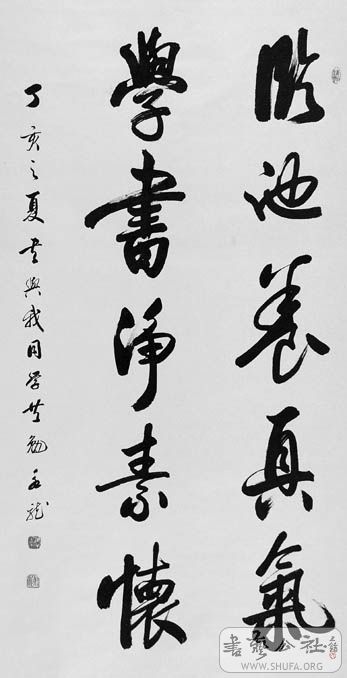 臨池養真氣
學書淨素懷
丁亥之夏書與我同學共勉
書藝公社
WWW.SHUFA.ORG